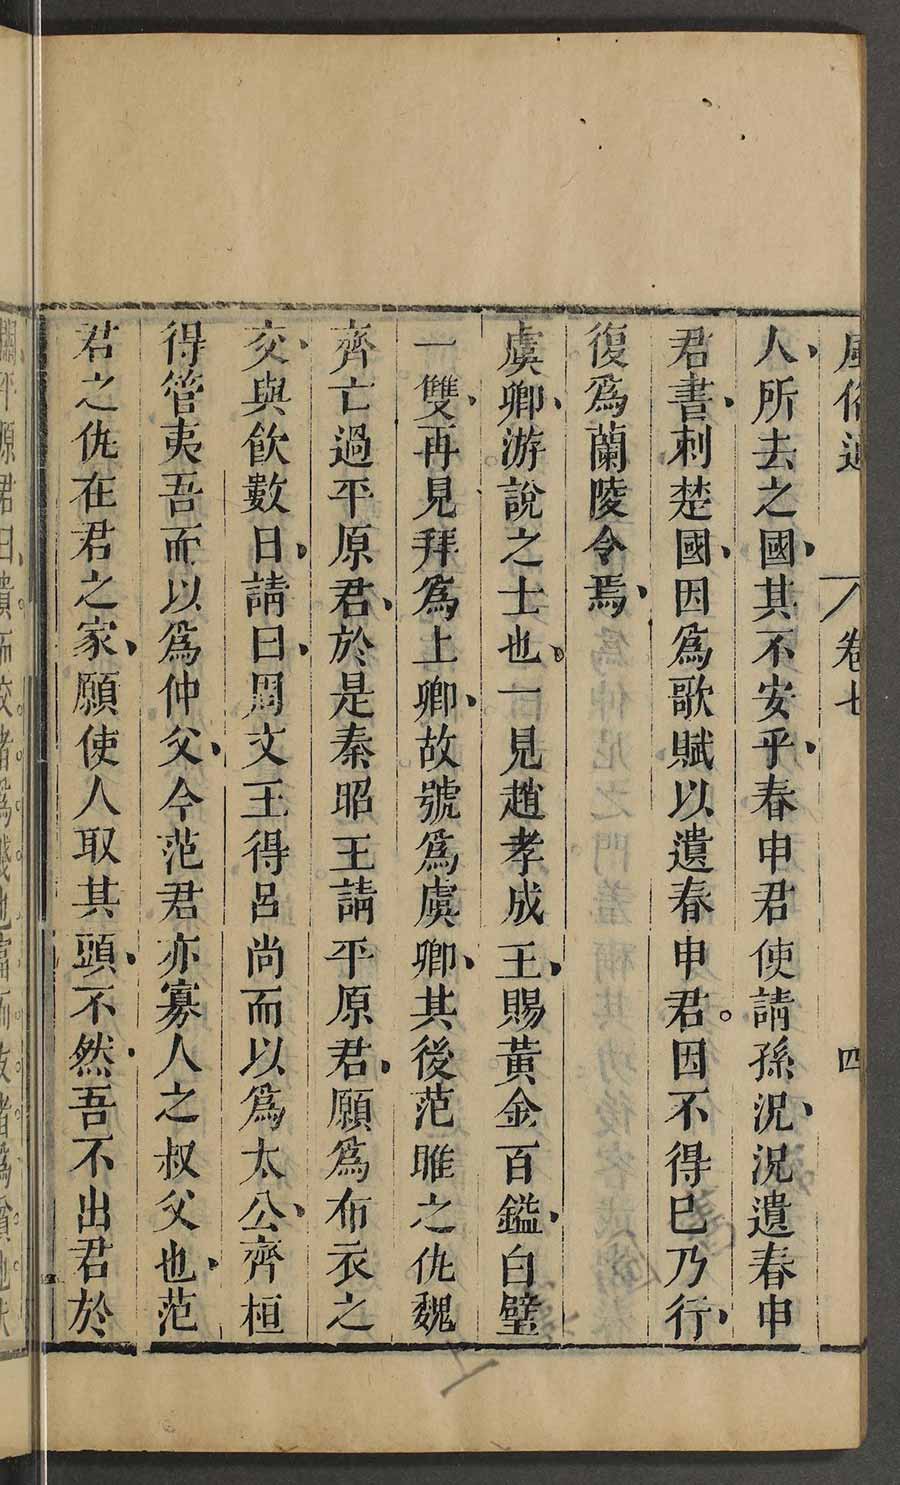 風俗通 卷七 四
人所去之國其不安乎春申君使請孫況況遺春申
君書刺楚國因爲歌賦以遺春申君因不得巳乃行
復爲蘭陵令焉
虞卿游說之士也一見趙孝成王賜黃金百鎰白璧
一雙再見拜爲上卿故號爲虞卿其後范雎之仇魏
齊亡過平原君於是秦昭王請平原君願爲布衣之
交與飮數日請曰周文王得呂尚而以爲太公齊桓
得管夷吾而以爲仲父今范君亦寡人之叔父也范
君之仇在君之家願使人取其頭不然吾不出君於